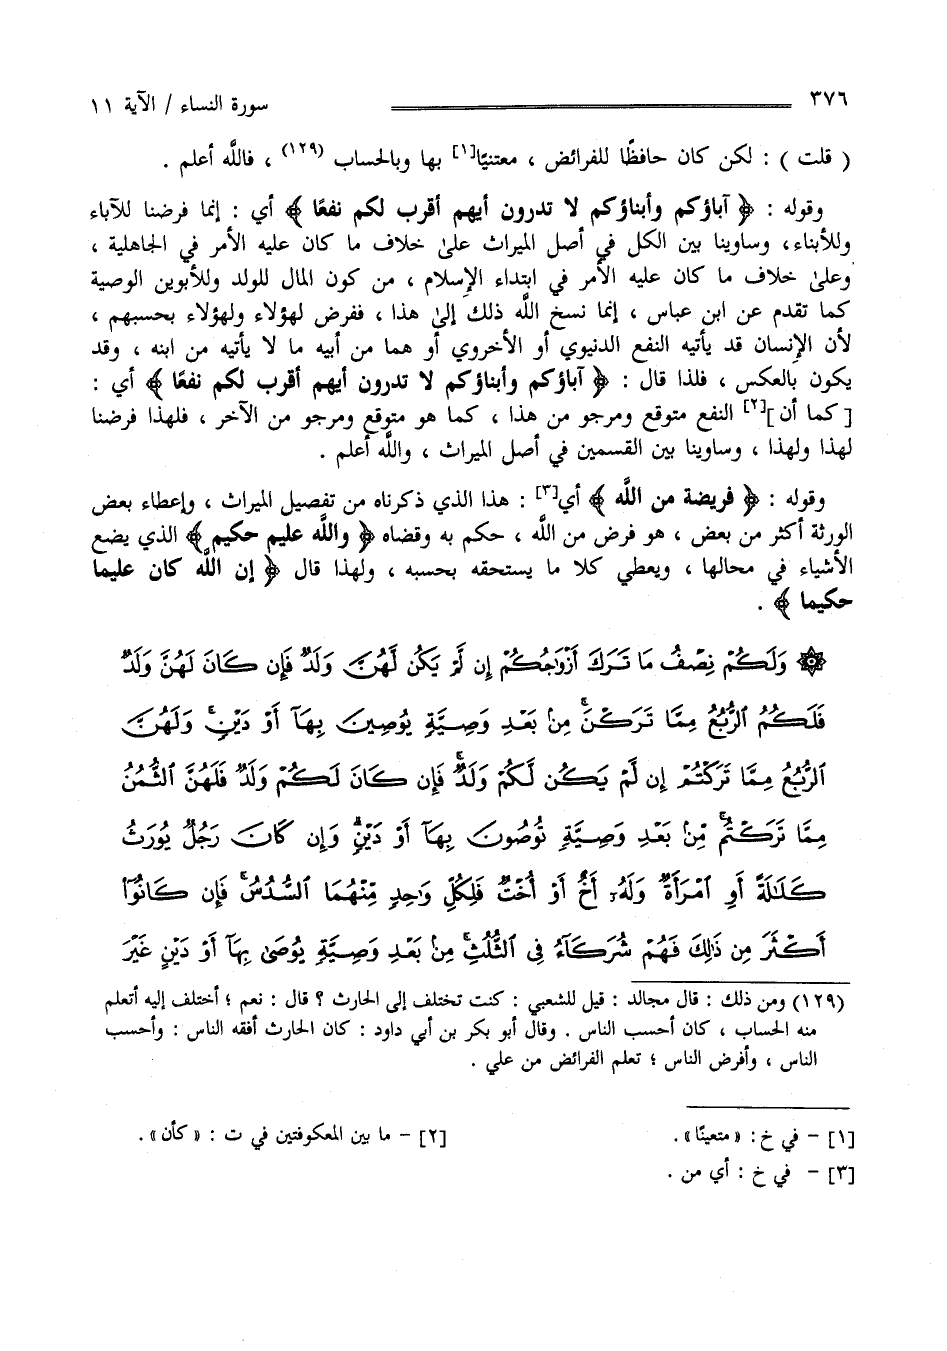 ٣٧٦ سورة النساء / الآية ١١
( قلت ) : لكن كان حافظًا للفرائض ، معتنيًا[١] بها وبالحساب (١٢٩) ، فاللَّه أعلم .
وقوله : ﴿ آباؤكم وأبناؤكم لا تدرون أيهم أقرب لكم نفعًا ﴾ أي : إنما فرضنا للآباء
وللأبناء، وساوينا بين الكل في أصل الميراث علىٰ خلاف ما كان عليه الأمر في الجاهلية ،
وعلىٰ خلاف ما كان عليه الأمر في ابتداء الإسلام ، من كون المال للولد وللأبوين الوصية
كما تقدم عن ابن عباس ، إنما نسخ اللَّه ذلك إلىٰ هذا ، ففرض لهؤلاء ولهؤلاء بحسبهم ،
لأن الإنسان قد يأتيه النفع الدنيوي أو الأخروي أو هما من أبيه ما لا يأتيه من ابنه ، وقد
يكون بالعكس ، فلذا قال : ﴿ آباؤكم وأبناؤكم لا تدرون أيهم أقرب لكم نفعًا ﴾ أي :
[ كما أن ][٢] النفع متوقع ومرجو من هذا ، كما هو متوقع ومرجو من الآخر ، فلهذا فرضنا
لهذا ولهذا ، وساوينا بين القسمين في أصل الميراث ، واللَّه أعلم .
وقوله : ﴿ فريضة من اللَّه ﴾ أي[٣] : هذا الذي ذكرناه من تفصيل الميراث ، وإعطاء بعض
الورثة أكثر من بعض ، هو فرض من اللَّه ، حكم به وقضاه ﴿ واللَّه عليم حكيم ﴾ الذي يضع
الأشياء في محالها ، ويعطي كلا ما يستحقه بحسبه ، ولهذا قال ﴿ إن اللَّه كان عليما
حكيما ﴾ .
۞ وَلَكُمْ نِصْفُ مَا تَرَكَ أَزْوَٰجُكُمْ إِن لَّمْ يَكُن لَّهُنَّ وَلَدٌ فَإِن كَانَ لَهُنَّ وَلَدٌ
فَلَكُمُ ٱلرُّبُعُ مِمَّا تَرَكْنَ ۚ مِنۢ بَعْدِ وَصِيَّةٍ يُوصِينَ بِهَآ أَوْ دَيْنٍ ۚ وَلَهُنَّ
ٱلرُّبُعُ مِمَّا تَرَكْتُمْ إِن لَّمْ يَكُن لَّكُمْ وَلَدٌ ۚ فَإِن كَانَ لَكُمْ وَلَدٌ فَلَهُنَّ ٱلثُّمُنُ
مِمَّا تَرَكْتُم ۚ مِّنۢ بَعْدِ وَصِيَّةٍ تُوصُونَ بِهَآ أَوْ دَيْنٍ ۗ وَإِن كَانَ رَجُلٌ يُورَثُ
كَلَٰلَةً أَوِ ٱمْرَأَةٌ وَلَهُۥٓ أَخٌ أَوْ أُخْتٌ فَلِكُلِّ وَٰحِدٍ مِّنْهُمَا ٱلسُّدُسُ ۚ فَإِن كَانُوٓا۟
أَكْثَرَ مِن ذَٰلِكَ فَهُمْ شُرَكَآءُ فِى ٱلثُّلُثِ ۚ مِنۢ بَعْدِ وَصِيَّةٍ يُوصَىٰ بِهَآ أَوْ دَيْنٍ غَيْرَ
(١٢٩) ومن ذلك : قال مجالد : قيل للشعبي : كنت تختلف إلى الحارث ؟ قال : نعم ؛ أختلف إليه أتعلم
منه الحساب ، كان أحسب الناس . وقال أبو بكر بن أبي داود : كان الحارث أفقه الناس : وأحسب
الناس ، وأفرض الناس ؛ تعلم الفرائض من علي .
[١] - في خ : « متعينًا ». [٢] - ما بين المعكوفتين في ت : « كأن ».
[٣] - في خ : أي من .